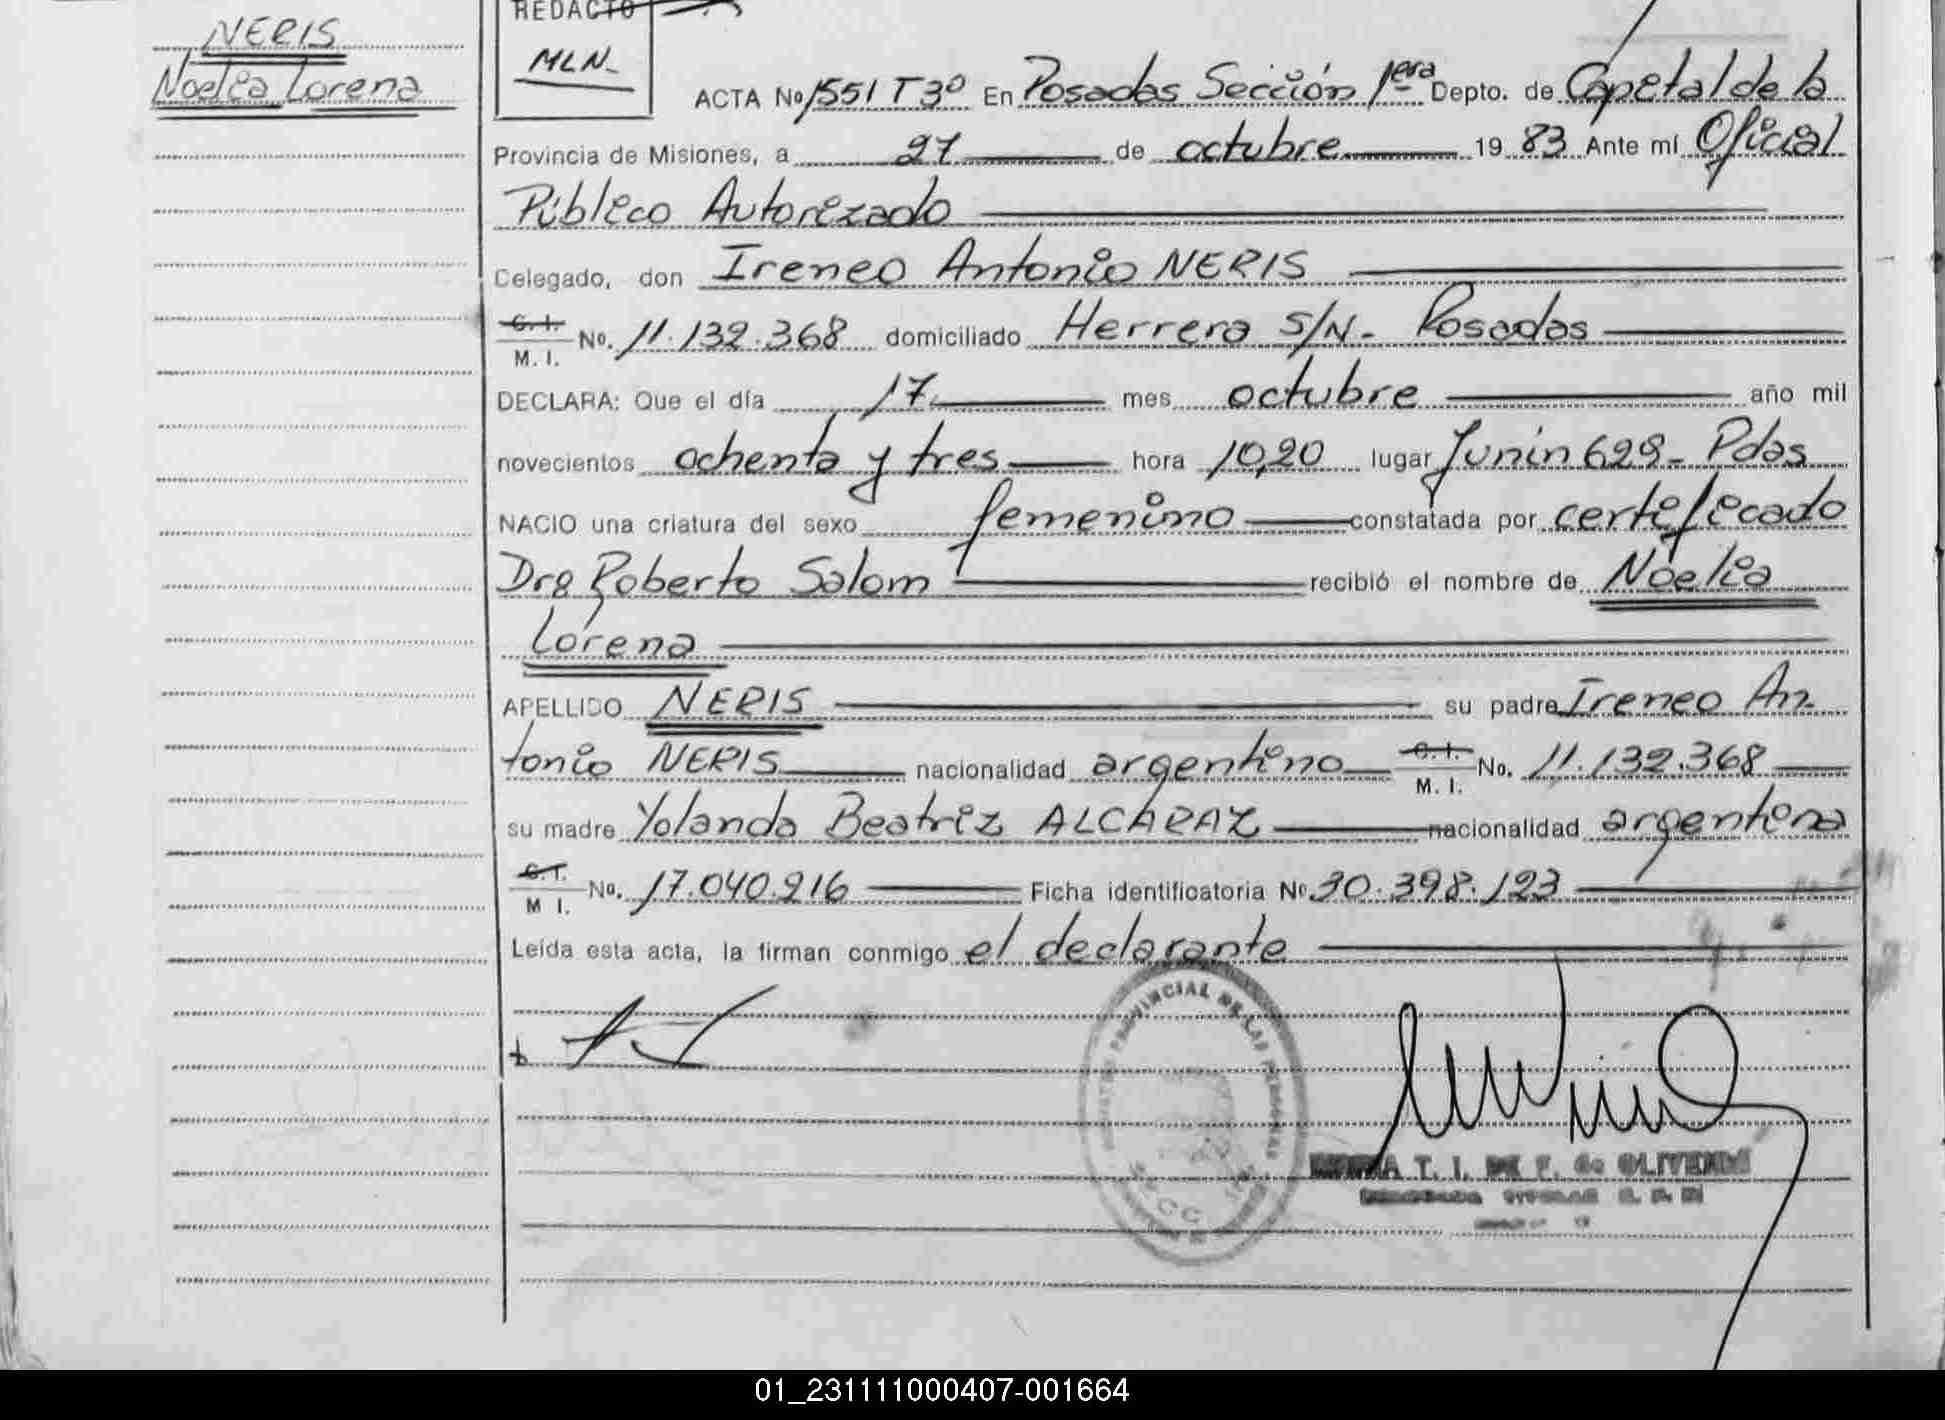 NERIS
Noelia Lorena
REDACTO
MLN_
ACTA No 1551 T3º En Posadas Sección 1era Depto. de Capital de la
Provincia de Misiones, a 27 de octubre 1983 Ante mí Oficial
Público Autorizado
Celegado, don Ireneo Antonio NERIS
C.I. M.I. No. 11.132.368 domiciliado Herrera S/N- Posadas
DECLARA: Que el día 17 mes octubre año mil
novecientos ochenta y tres hora 10,20 lugar Junín 629- Pdas
NACIO una criatura del sexo femenino constatada por certificado
Dro Roberto Salom recibió el nombre de Noelia
Lorena
APELLIDO NERIS su padre Ireneo An-
tonio NERIS nacionalidad argentino C.I. M.I. No. 11.132.368
su madre Yolanda Beatriz ALCARAZ nacionalidad argentina
C.I. M I. No. 17.040.216 Ficha identificatoria Nº 30.398.123
Leída esta acta, la firman conmigo el declarante
PROVINCIAL DE LAS PERSONAS
T. I. DE F. de OLIVEIRA
01_231111000407-001664